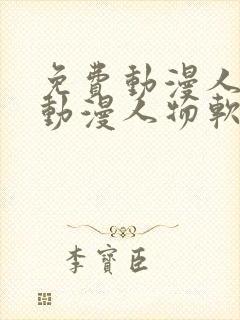 免費動漫人
動漫人物軟
李寶臣